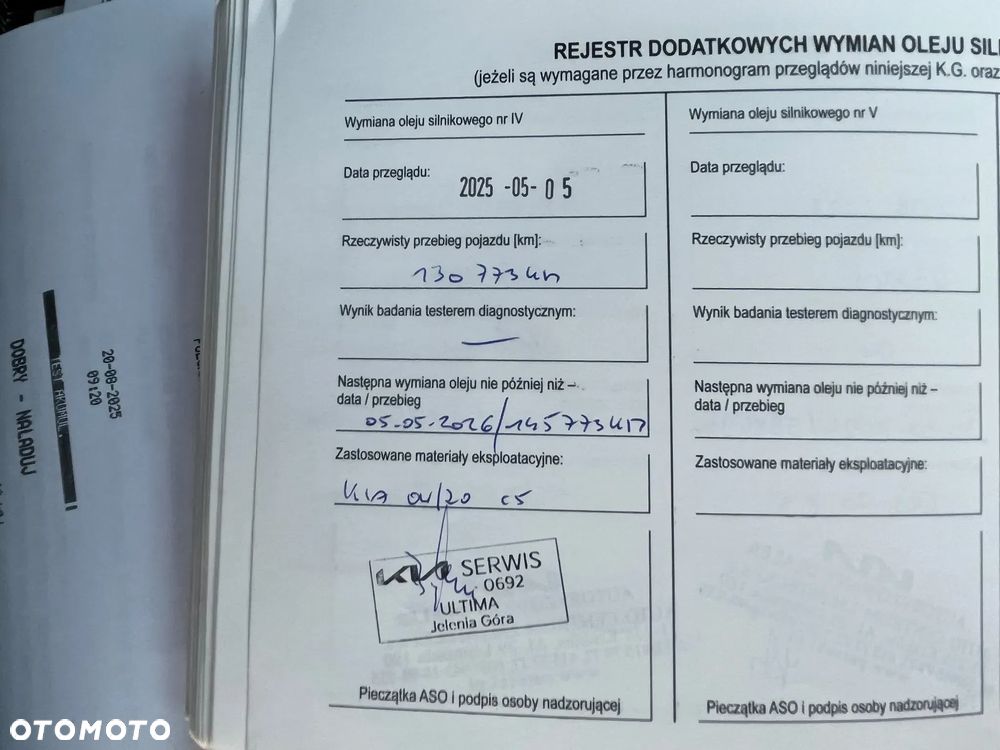 REJESTR DODATKOWYCH WYMIAN OLEJU SIL
(jeżeli są wymagane przez harmonogram przeglądów niniejszej K.G. oraz
Wymiana oleju silnikowego nr IV
Data przeglądu:
2025 -05- 05
Rzeczywisty przebieg pojazdu [km]:
130 773km
Wynik badania testerem diagnostycznym:
—
Następna wymiana oleju nie później niż –
data / przebieg
05-05-2026/145773km
Zastosowane materiały eksploatacyjne:
KIA 0W/20 C5
KIA SERWIS
0692
ULTIMA
Jelenia Góra
Pieczątka ASO i podpis osoby nadzorującej
Wymiana oleju silnikowego nr V
Data przeglądu:
Rzeczywisty przebieg pojazdu [km]:
Wynik badania testerem diagnostycznym:
Następna wymiana oleju nie później niż –
data / przebieg
Zastosowane materiały eksploatacyjne:
Pieczątka ASO i podpis osoby nadzorującej
20-08-2025
09:20
DOBRY - NALADUJ
OTOMOTO